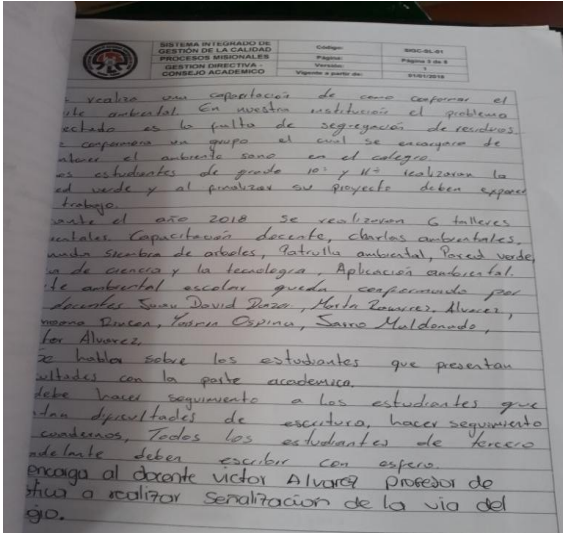 SISTEMA INTEGRADO DE
GESTIÓN DE LA CALIDAD
PROCESOS MISIONALES
GESTION DIRECTIVA -
CONSEJO ACADEMICO
Código: SIGC-SL-01
Página: Página 5 de 6
Versión: 1
Vigente a partir de: 01/01/2018
realiza una capacitación de como conformar el
ambiental. En nuestra institución el problema
es la falta de segregación de residuos.
conformara un grupo el cual se encargara de
el ambiente sano en el colegio.
es estudiantes de grado 10° y 11° realizaran la
ed verde y al finalizar su proyecto deben exponer
trabajo.
ante el año 2018 se realizaron 6 talleres
entales. Capacitación docente, charlas ambientales,
siembra de arboles, Patrulla ambiental, Pared verde,
de ciencia y la tecnologia, Aplicación ambiental.
te ambiental escolar queda conformado por
docentes Juan David Daza, Marta Ramirez, Alvarez,
Rincon, Yasmin Ospina, Maldonado,
tor Alvarez.
se habla sobre los estudiantes que presentan
ultades con la parte academica.
debe hacer seguimiento a los estudiantes que
dificultades de escritura, hacer seguimiento
cuadernos, Todos los estudiantes de tercero
adelante deben escribir con esfero.
encarga al docente victor Alvarez profesor de
stica a realizar señalizacion de la via del
gio.